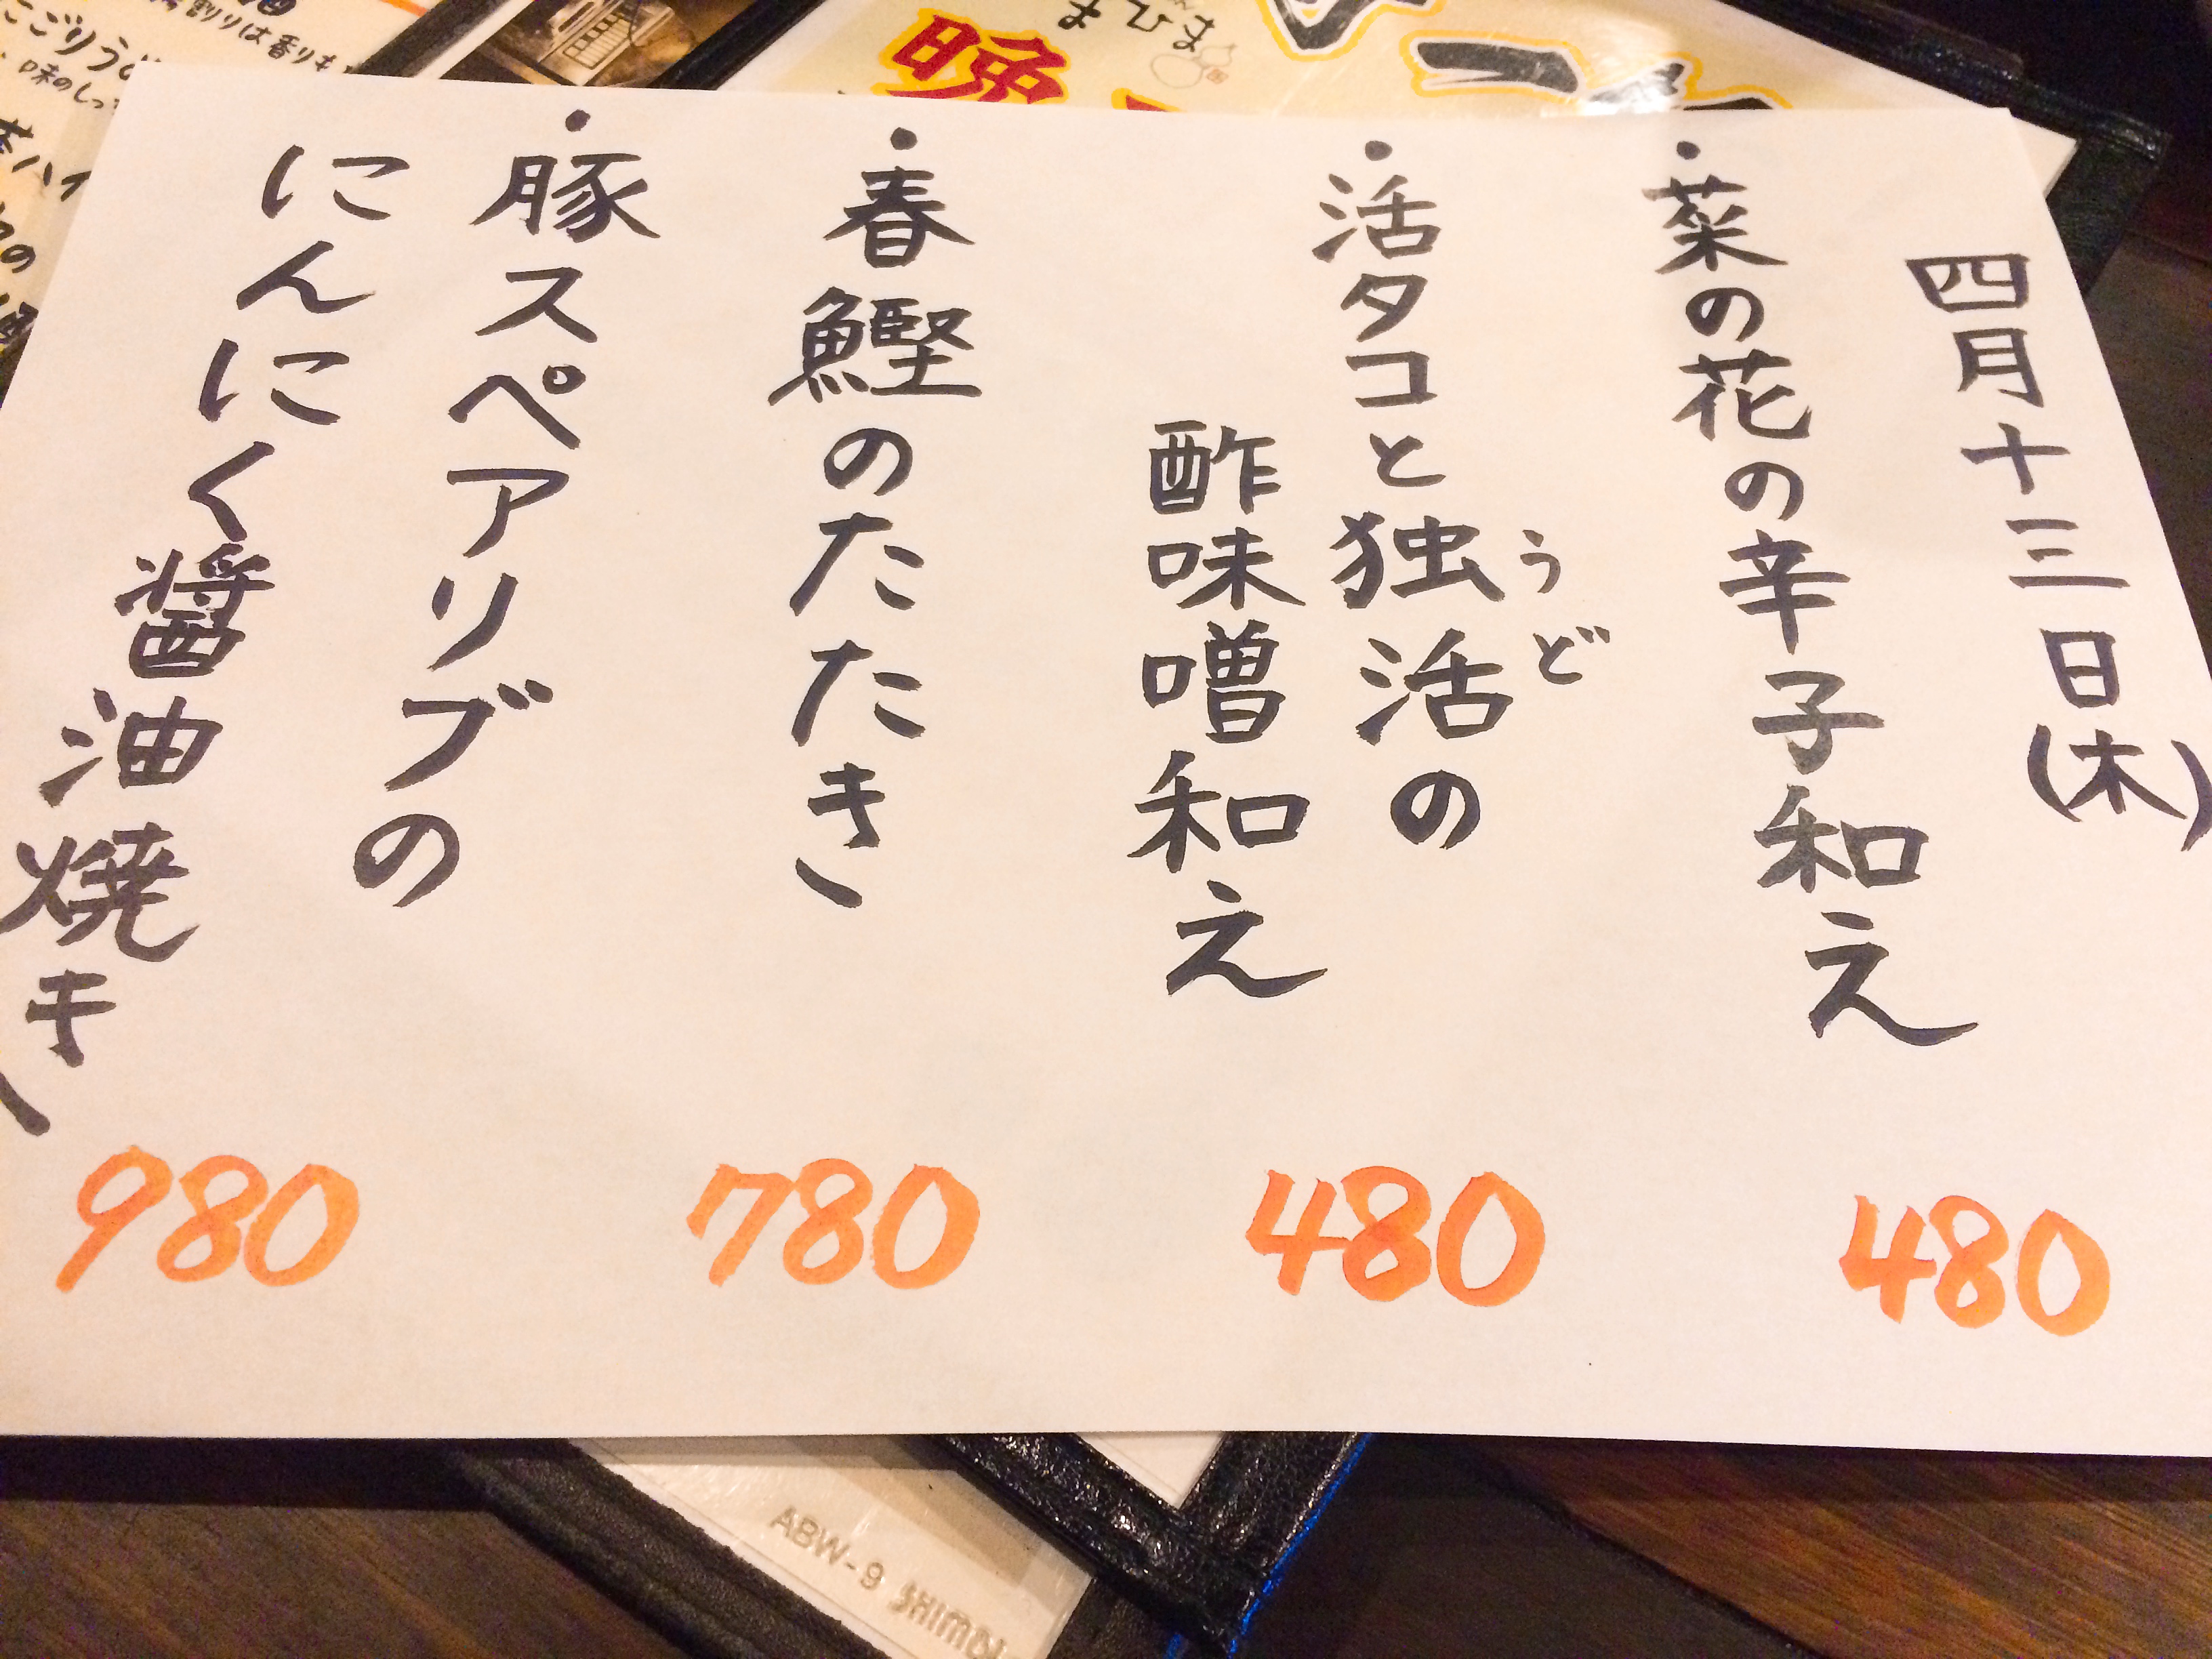 四月十三日(木)
・菜の花の辛子和え
480
・活タコと独活の
うど
酢味噌和え
480
・春鰹のたたき
780
・豚スペアリブの
にんにく醤油焼き
980
晩
ABW-9 SHIMBI